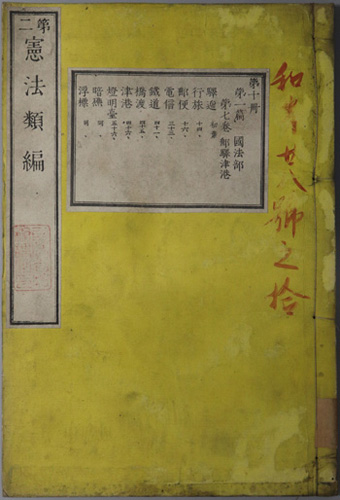 和十九八號之拾
第十冊
第一篇 國法部
第七卷 郵驛津港
驛遞 初葉
行旅 十四、
郵便 十六、
電信 三十三、
鐵道
橋渡
津港
燈明臺 五十六、
暗礁 同、
浮標 同、
第二 憲法類編